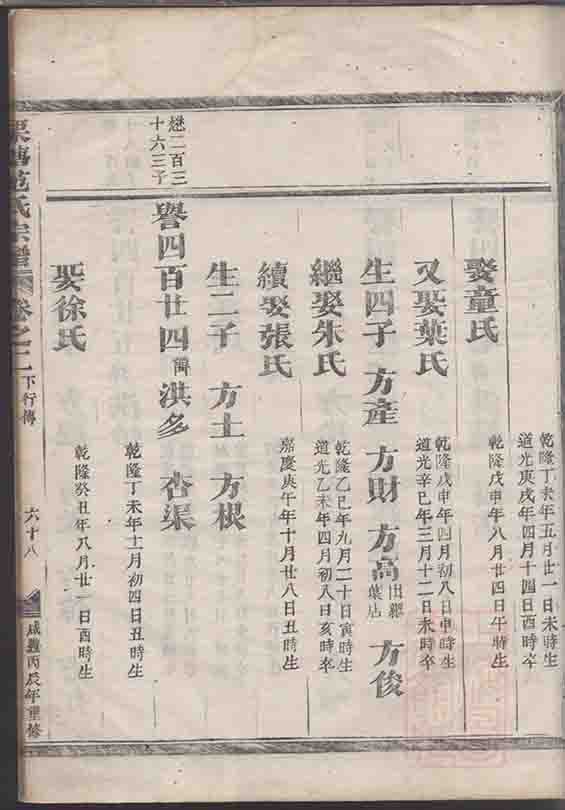 乾隆丁未年五月廿一日未時生
道光庚戌年四月十四日酉時卒
娶童氏
乾隆戊申年八月廿四日午時生
又娶葉氏
乾隆戊申年四月初八日申時生
道光辛巳年三月十二日未時卒
生四子 方產 方財 方高 出繼葉店 方俊
繼娶朱氏
乾隆乙巳年九月二十日寅時生
道光乙未年四月初八日亥時卒
續娶張氏
嘉慶庚午年十月廿八日丑時生
生二子 方土 方根
懋二百三
十六三子
譽四百廿四 諱 淇多 杏渠
乾隆丁未年十一月初四日丑時生
娶徐氏
乾隆癸丑年八月廿一日酉時生
范氏宗譜 卷之二 下行傳 六十八 咸豐丙辰年重修